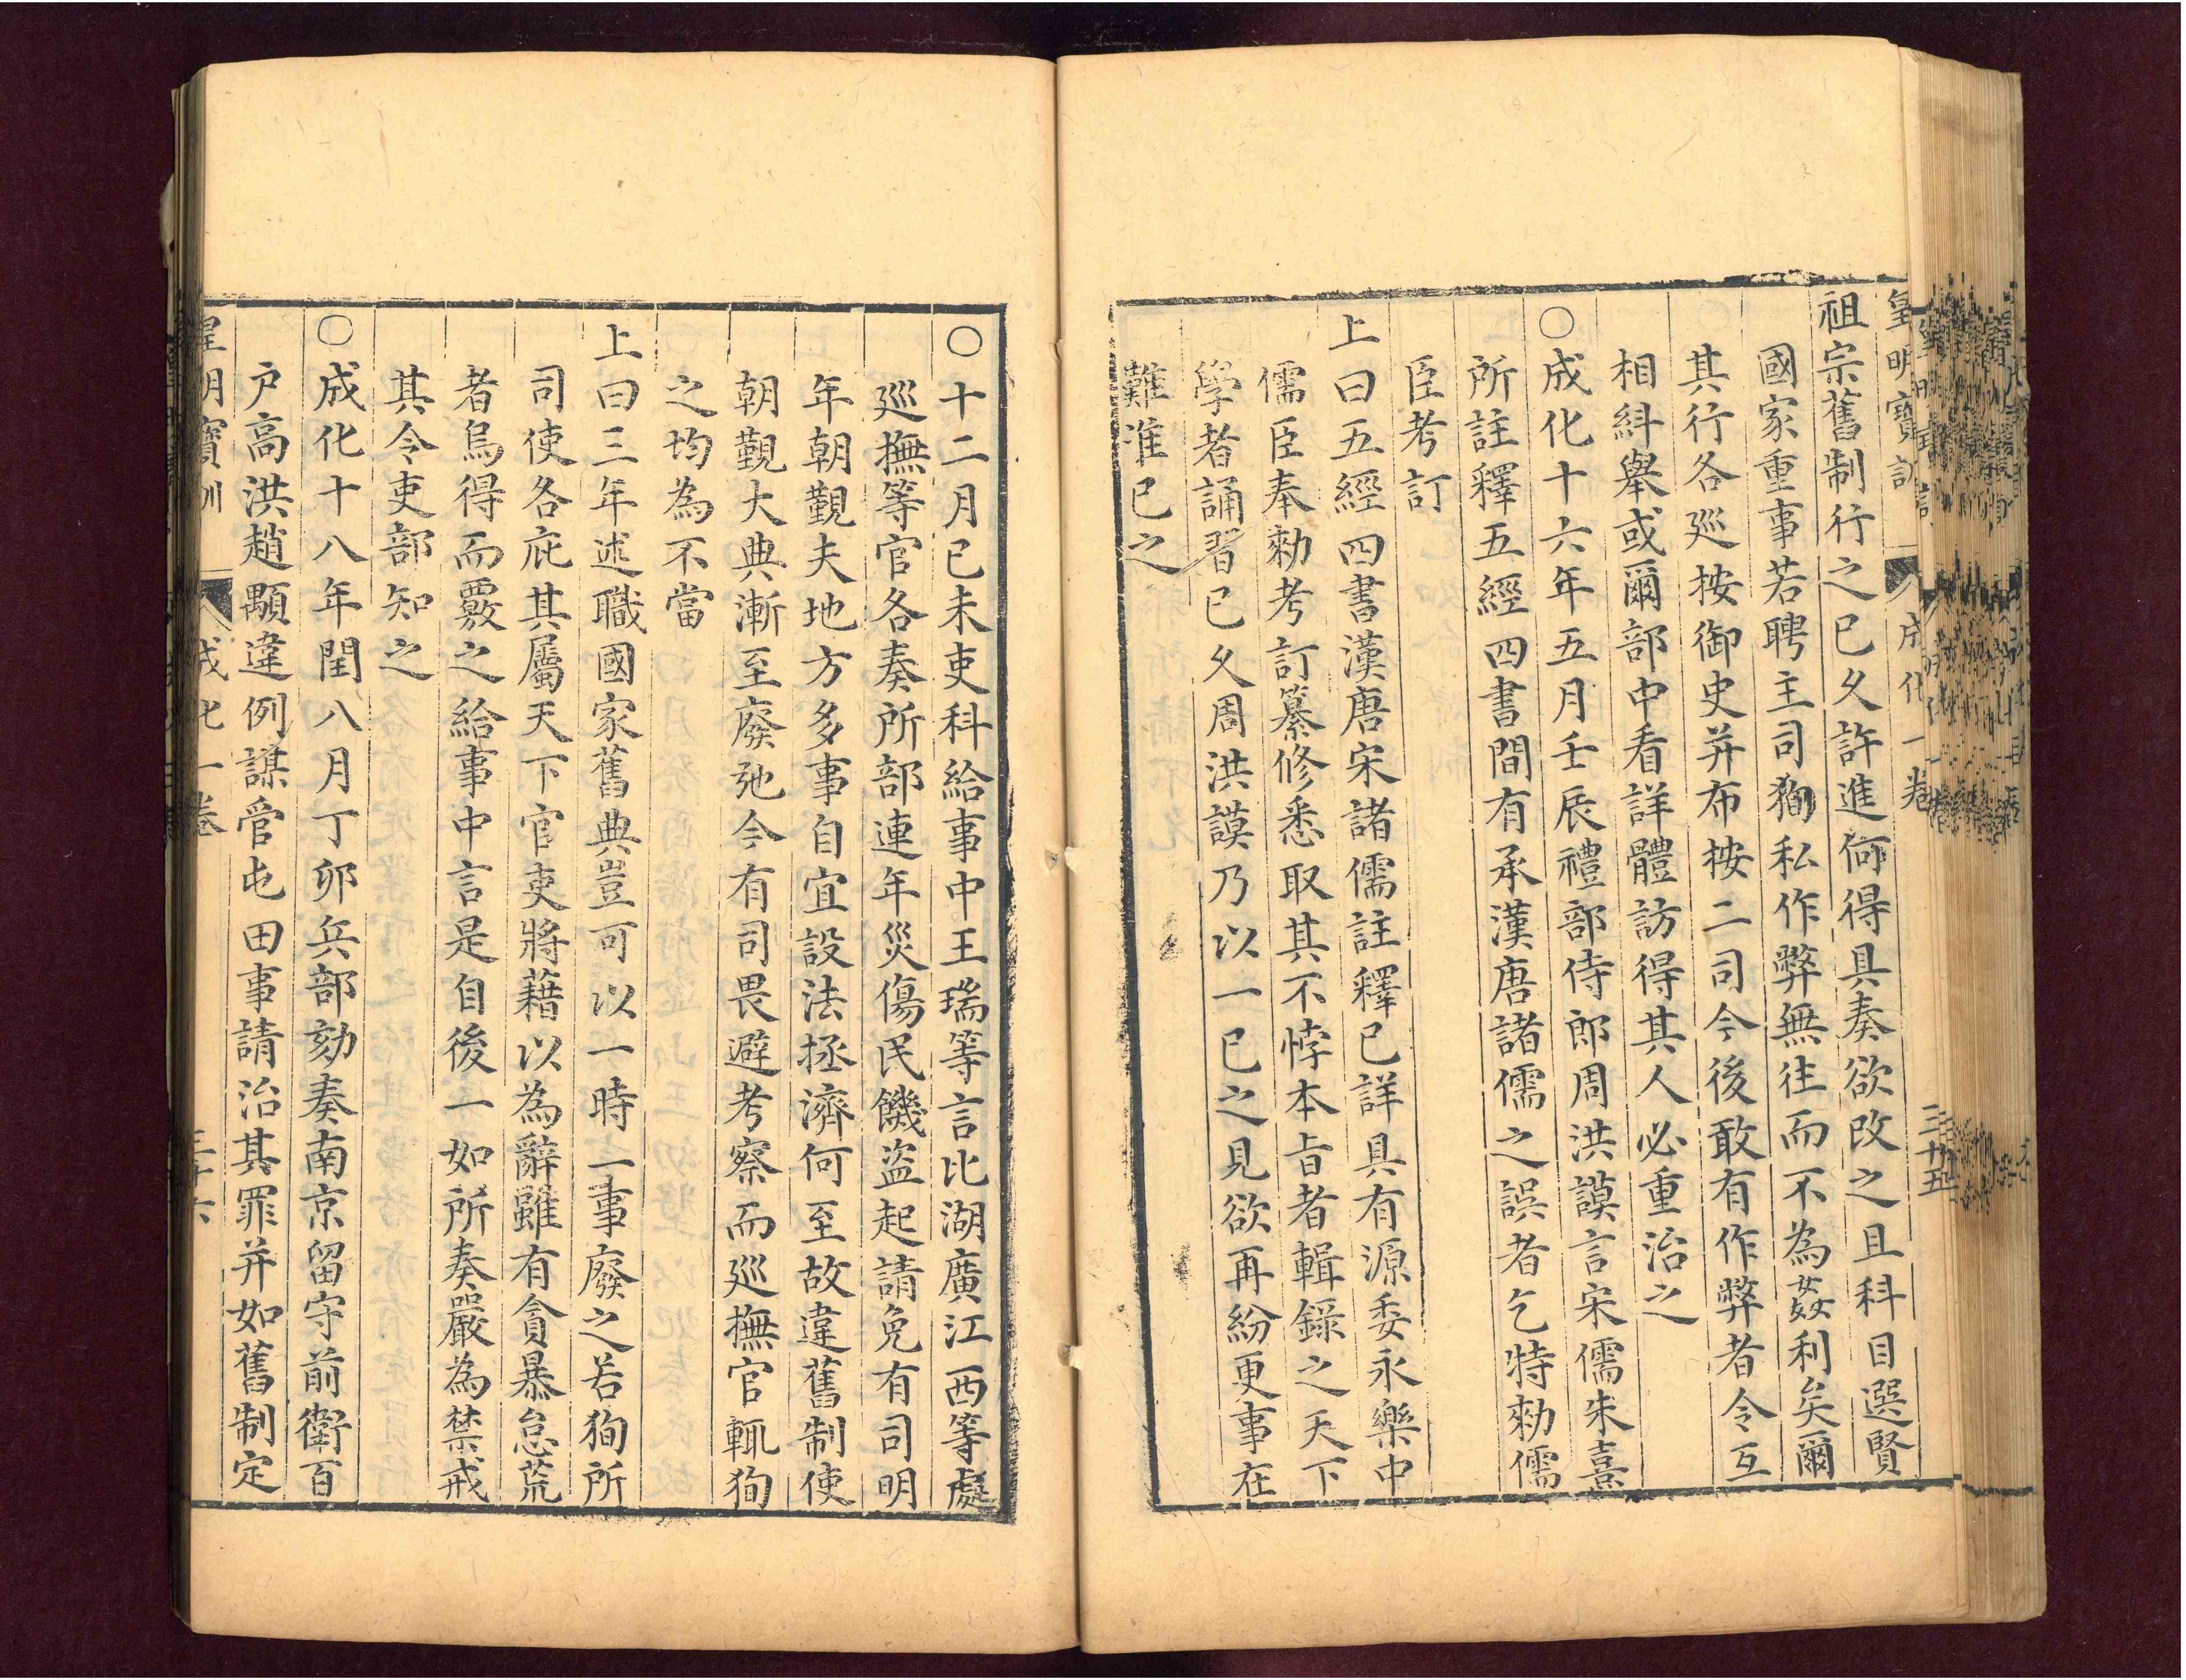 皇明寶訓 成化一卷 三十五
祖宗舊制行之已久許進何得具奏欲改之且科目選賢
國家重事若聘主司狥私作弊無往而不為姦利矣爾
其行各廵按御史并布按二司今後敢有作弊者令互
相糾舉或爾部中看詳體訪得其人必重治之
○成化十六年五月壬辰禮部侍郎周洪謨言宋儒朱熹
所註釋五經四書間有承漢唐諸儒之誤者乞特勑儒
臣考訂
上曰五經四書漢唐宋諸儒註釋已詳具有源委永樂中
儒臣奉勑考訂纂修悉取其不悖本旨者輯錄之天下
學者誦習已久周洪謨乃以一已之見欲再紛更事在
難准已之
○十二月已未吏科給事中王瑞等言比湖廣江西等處
廵撫等官各奏所部連年災傷民饑盗起請免有司明
年朝覲夫地方多事自宜設法拯濟何至故違舊制使
朝覲大典漸至廢弛今有司畏避考察而廵撫官輒狥
之均為不當
上曰三年述職國家舊典豈可以一時一事廢之若狥所
司使各庇其屬天下官吏將藉以為辭雖有貪暴怠荒
者烏得而覈之給事中言是自後一如所奏嚴為禁戒
其令吏部知之
○成化十八年閏八月丁卯兵部劾奏南京留守前衛百
戶高洪趙顒違例謀管屯田事請治其罪并如舊制定
皇明寶訓 成化一卷 三十六